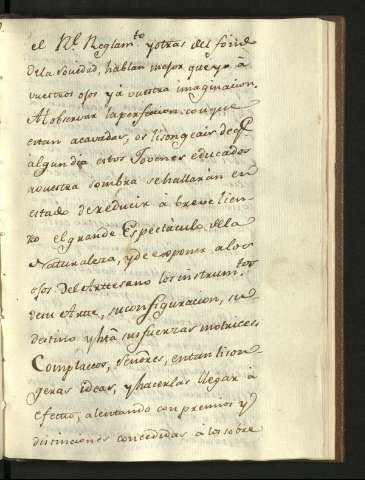 el Rl. Reglam.to y otras del fondo
de la Sociedad, hablan mejor que yo á
vuestros ojos y á vuestra imaginacion.
Al observar la perfeccion con que
estan acavadas, os lisongeais de q.e
algun dia estos Jovenes educados
a vuestra sombra se hallarán en
estado de reducir á breve lien-
zo el grande Espectáculo de la
Naturaleza, y de exponer a los
ojos del Artesano los instrum.tos
de su Arte, su configuracion, su
destino y htã. sus fuerzas motrices.
Complaceos, Señores, en tan lison
geras ideas, y hacerlas llegar á
efecto, alentando con premios y
distinciones concedidas á los sobre